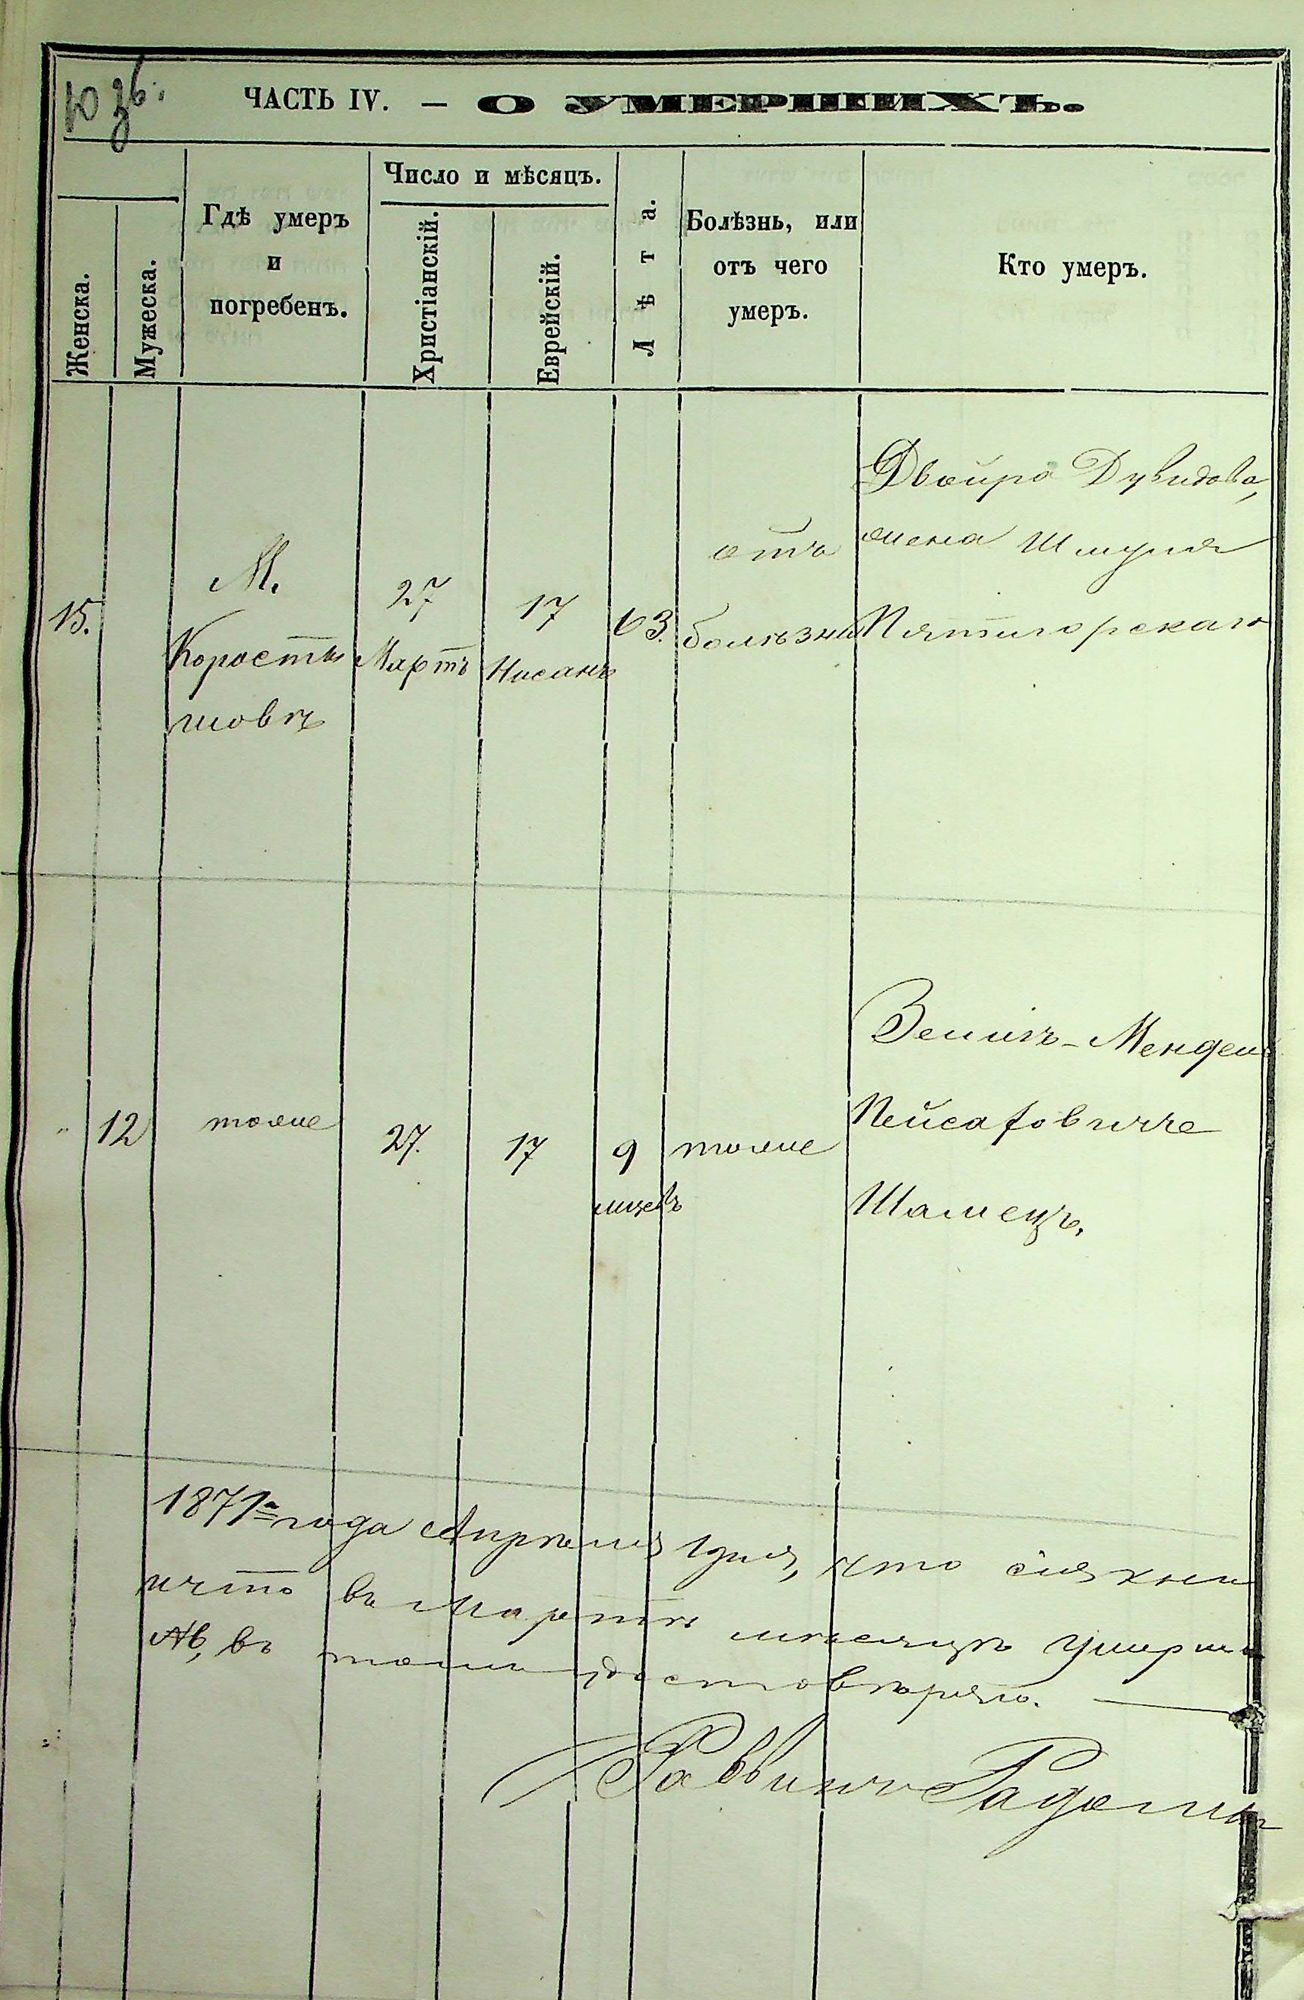 ЧАСТЬ IV. — О УМЕРШИХЪ.
Женска.
Мужеска.
Гдѣ умеръ
и
погребенъ.
Число и мѣсяцъ.
Христіанскій.
Еврейскій.
Лѣта.
Болѣзнь, или
отъ чего
умеръ.
Кто умеръ.
15.
М.
Коросты
шовъ
27
Мартъ
17
Нисанъ
63.
отъ
болѣзни
Двойра Дувидова,
жена Шмуля
Пятигорскаго
12
тоже
27.
17
9
мѣсяцъ
тоже
Зелигъ-Мендель
Пейсаховичъ
Шамецъ.
1871 года Апрѣля 1 дня, что сія кни
что въ Мартѣ мѣсяцѣ умерши
въ томъ достовѣряю.
Раввинъ